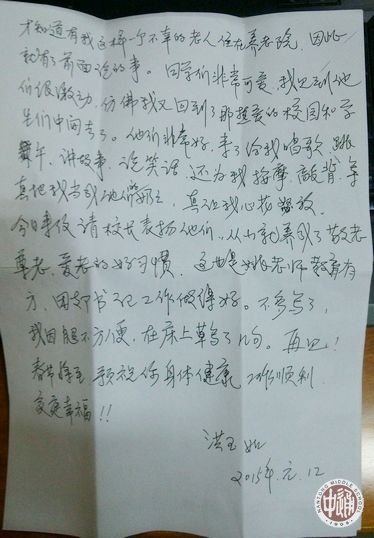 才知道有我这样一个不幸的老人住在养老院，因此
就有了前面说的事。同学们非常可爱，我见到他
们很激动，仿佛我又回到了那热爱的校园和学
生们中间去了。他们非常好，来了给我唱歌 跳
舞，讲故事，说笑话，还为我按摩，敲背，等
真把我当成他们的，真让我心花怒放。
今日来信请校长表扬他们，从小就养成了敬老
尊老、爱老的好习惯，这也是姚老师教育有
方，团部书记工作做得好。不多写了，
我因腿不方便，在床上草写了几句。再见！
春节将至 预祝你身体健康 工作顺利
家庭幸福！！
洪玉如
2015年.元.12
NANTONG MIDDLE SCHOOL
1909